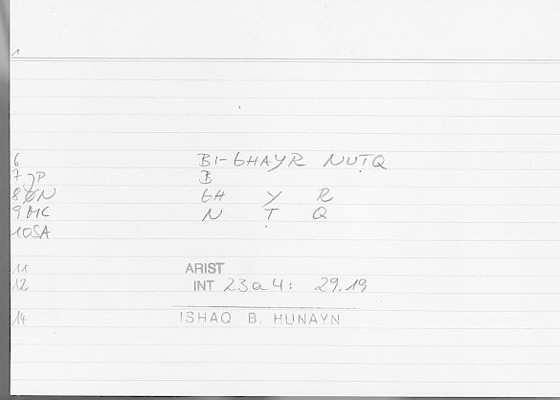 1
6 BI-GHAYR NUṬQ
7 gP B
8 ØN GH Y R
9 MC N Ṭ Q
10 SA
11 ARIST
12 INT 23a4: 29.19
14 ISHAQ B. HUNAYN